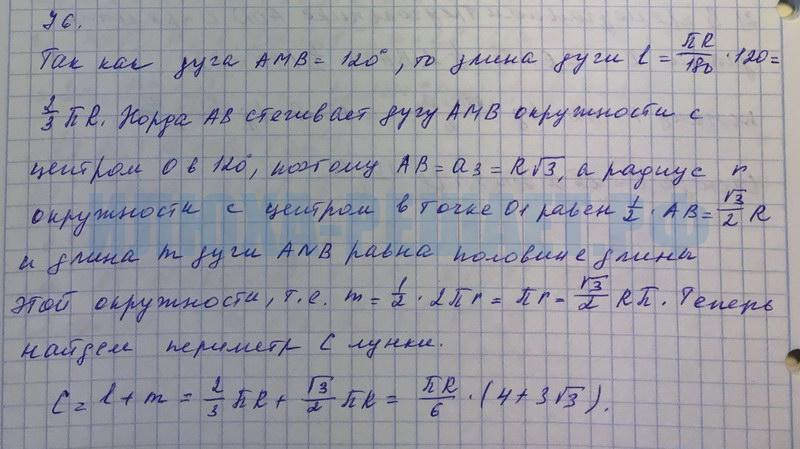 76.
Так как дуга AMB = 120°, то длина дуги l = πR/180 · 120 =
2/3 πR. Хорда AB стягивает дугу AMB окружности с
центром O в 120°, поэтому AB = a₃ = R√3, а радиус r
окружности с центром в точке O₁ равен 1/2 · AB = √3/2 R
и длина m дуги ANB равна половине длины
этой окружности, т.е. m = 1/2 · 2πr = πr = √3/2 Rπ. Теперь
найдем периметр C лунки.
C = l + m = 2/3 πR + √3/2 πR = πR/6 · (4 + 3√3).